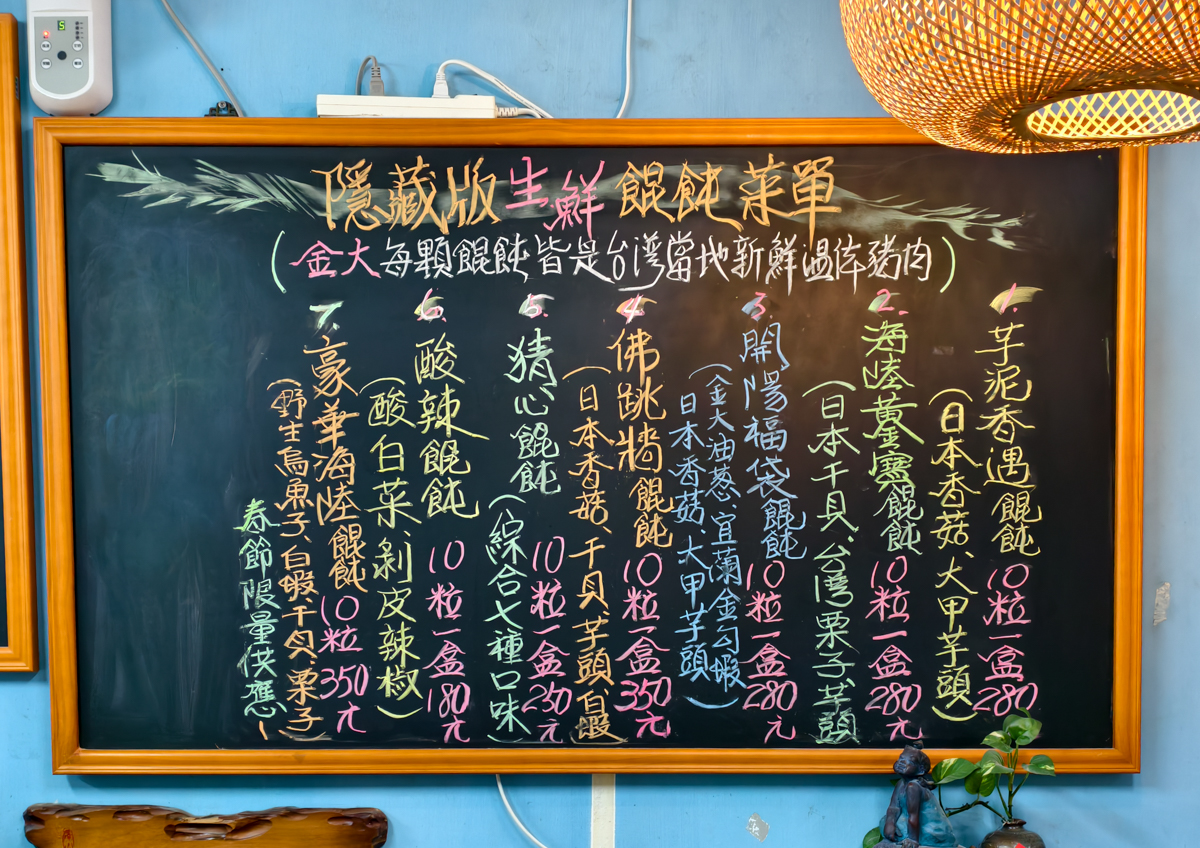 隱藏版生鮮餛飩菜單
(金大每顆餛飩皆是台灣當地新鮮溫体豬肉)
1.芋泥香遇餛飩10粒一盒280
(日本香菇、大甲芋頭)
2.海陸黃金寶餛飩10粒一盒280元
(日本干貝、台灣栗子、芋頭
3.開陽福袋餛飩10粒一盒280元
(金大油蔥、宜蘭金勾蝦
日本香菇、大甲芋頭)
4.佛跳牆餛飩10粒一盒350元
(日本香菇、干貝、芋頭、白蝦
5.猜心餛飩10粒一盒250元
(綜合七種口味)
6.酸辣餛飩10粒一盒180元
(酸白菜、剝皮辣椒)
7.豪華海陸餛飩10粒350元
(野生烏魚子、白蝦、干貝、栗子)
春節限量供應~
5